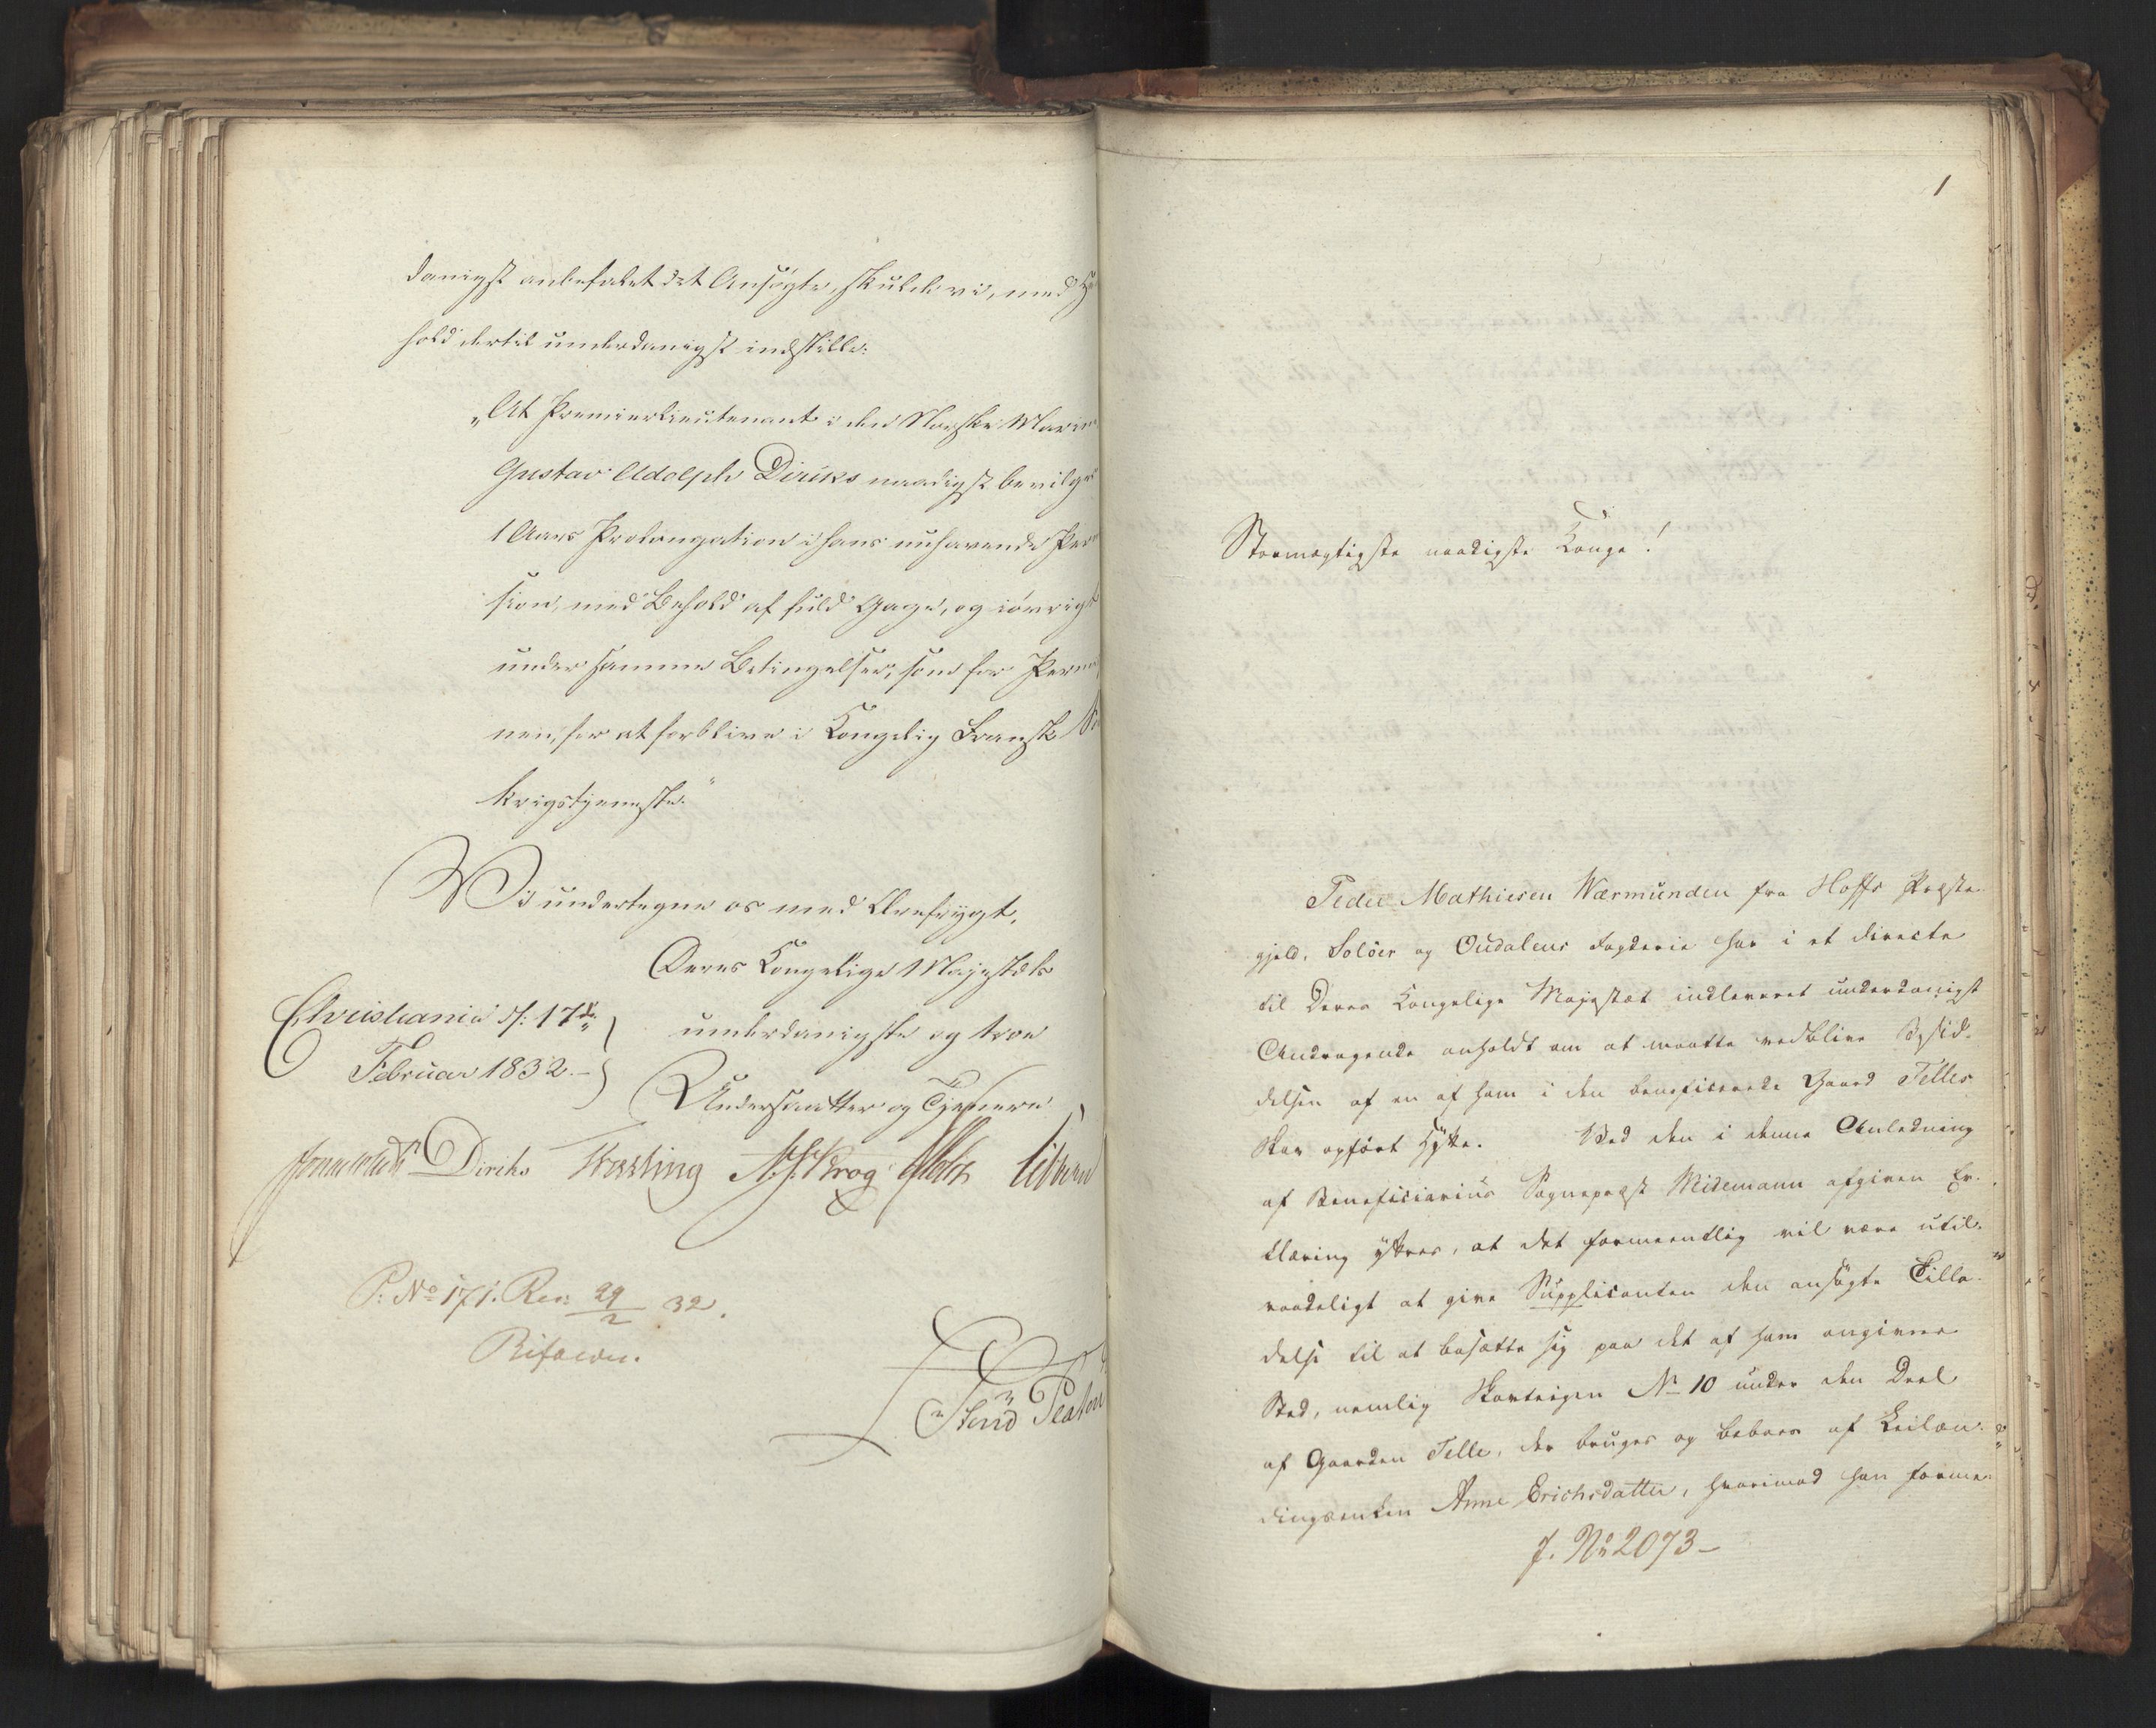 danigst anbefalet det Ansøgte, skulde vi, med Hen
hold dertil underdanigst indstille:
„At Premierlieutenant i den Norske Marine
Gustav Adolph Diriks naadigst bevilges
1 Aars Prolongation i hans nuhavende Per
sion, med Behold af fuld Gage, og iøvrigt
under samme Betingelser, som for Perm
nen, for at forblive i Kongelig Fransk
Krigstjeneste."
Vi undertegne os med Ærefrygt,
Deres Kongelige Majestæts
Christiania d: 17de
underdanigste og troe
Februar 1832.
Undersaatter og Tjenere
Diriks Fasting Krog Holst
P: No 171. Res: 29/2 32.
Bifaldes.
1
Stormægtigste naadigste Konge!
Peder Mathiesen Værmunden fra Hoffs Præste
gjeld, Soløer og Oudalens Fogderie har i et directe
til Deres Kongelige Majestæt indleveret underdanigst
Andragende anholdt om at maatte vedblive Besid-
delsen af en af ham i den beneficerede Gaard Telles
Skov opført Hytte. Ved den i denne Anledning
af Beneficiarius Sognepræst Midemann afgiven Er-
klæring yttres, at det formeentlig vil være util-
raadeligt at give Supplicanten den ansøgte Tilla-
delse til at besætte sig paa det af ham angivne
Sted, nemlig Skovteigen No 10 under den Deel
af Gaarden Telle, der bruges og beboes af Leilæn-
dingsenken Anne Erichsdatter, hvorimod han forme-
J. No 2073-